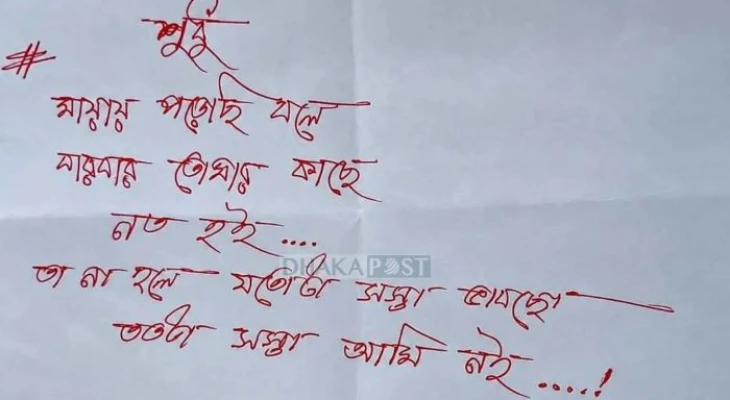 শুধু
# মায়ায় পড়েছি বলে
বারবার তোমার কাছে
নত হই....
DHAKA POST
তা না হলে যতোটা সস্তা ভাবছো
ততটা সস্তা আমি নই.....!